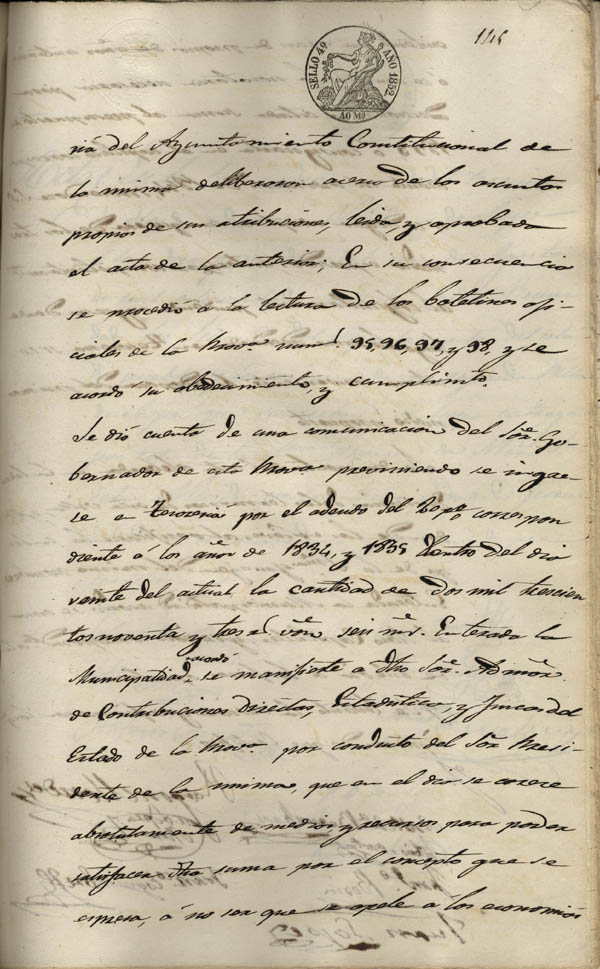 145
SELLO 4º AÑO 1852.
40 Ms
ria del Ayuntamiento Constitucional de
la misma deliberaron acerca de los asuntos
propios de sus atribuciones, leida y aprobada
el acta de la anterior; En su consecuencia
se procedió a la lectura de los boletines ofi-
ciales de la Prova. nums. 95, 96, 97, y 98, y se
acordó su obedecimiento, y cumplimto.
Se dió cuenta de una comunicacion del Sor. Go-
bernador de esta Prova. previniendo se ingre-
se en Tesoreria por el adeudo del correspon
diente á los años de 1834, y 1835 dentro del dia
veinte del actual la cantidad de dos mil trescien
tos noventa y tres rs. von. seis mrs. Enterada la
Municipalidad, acordó se manifieste a dho Sor. Admor.
de Contribuciones Directas, Estadistica, y Fincas del
Estado de la Prova. por conducto del Sor. Presi-
dente de la misma, que en el dia se carece
absolutamente de medios y recursos para poder
satisfacer dha suma por el concepto que se
espresa, á no ser que se apele á los economias